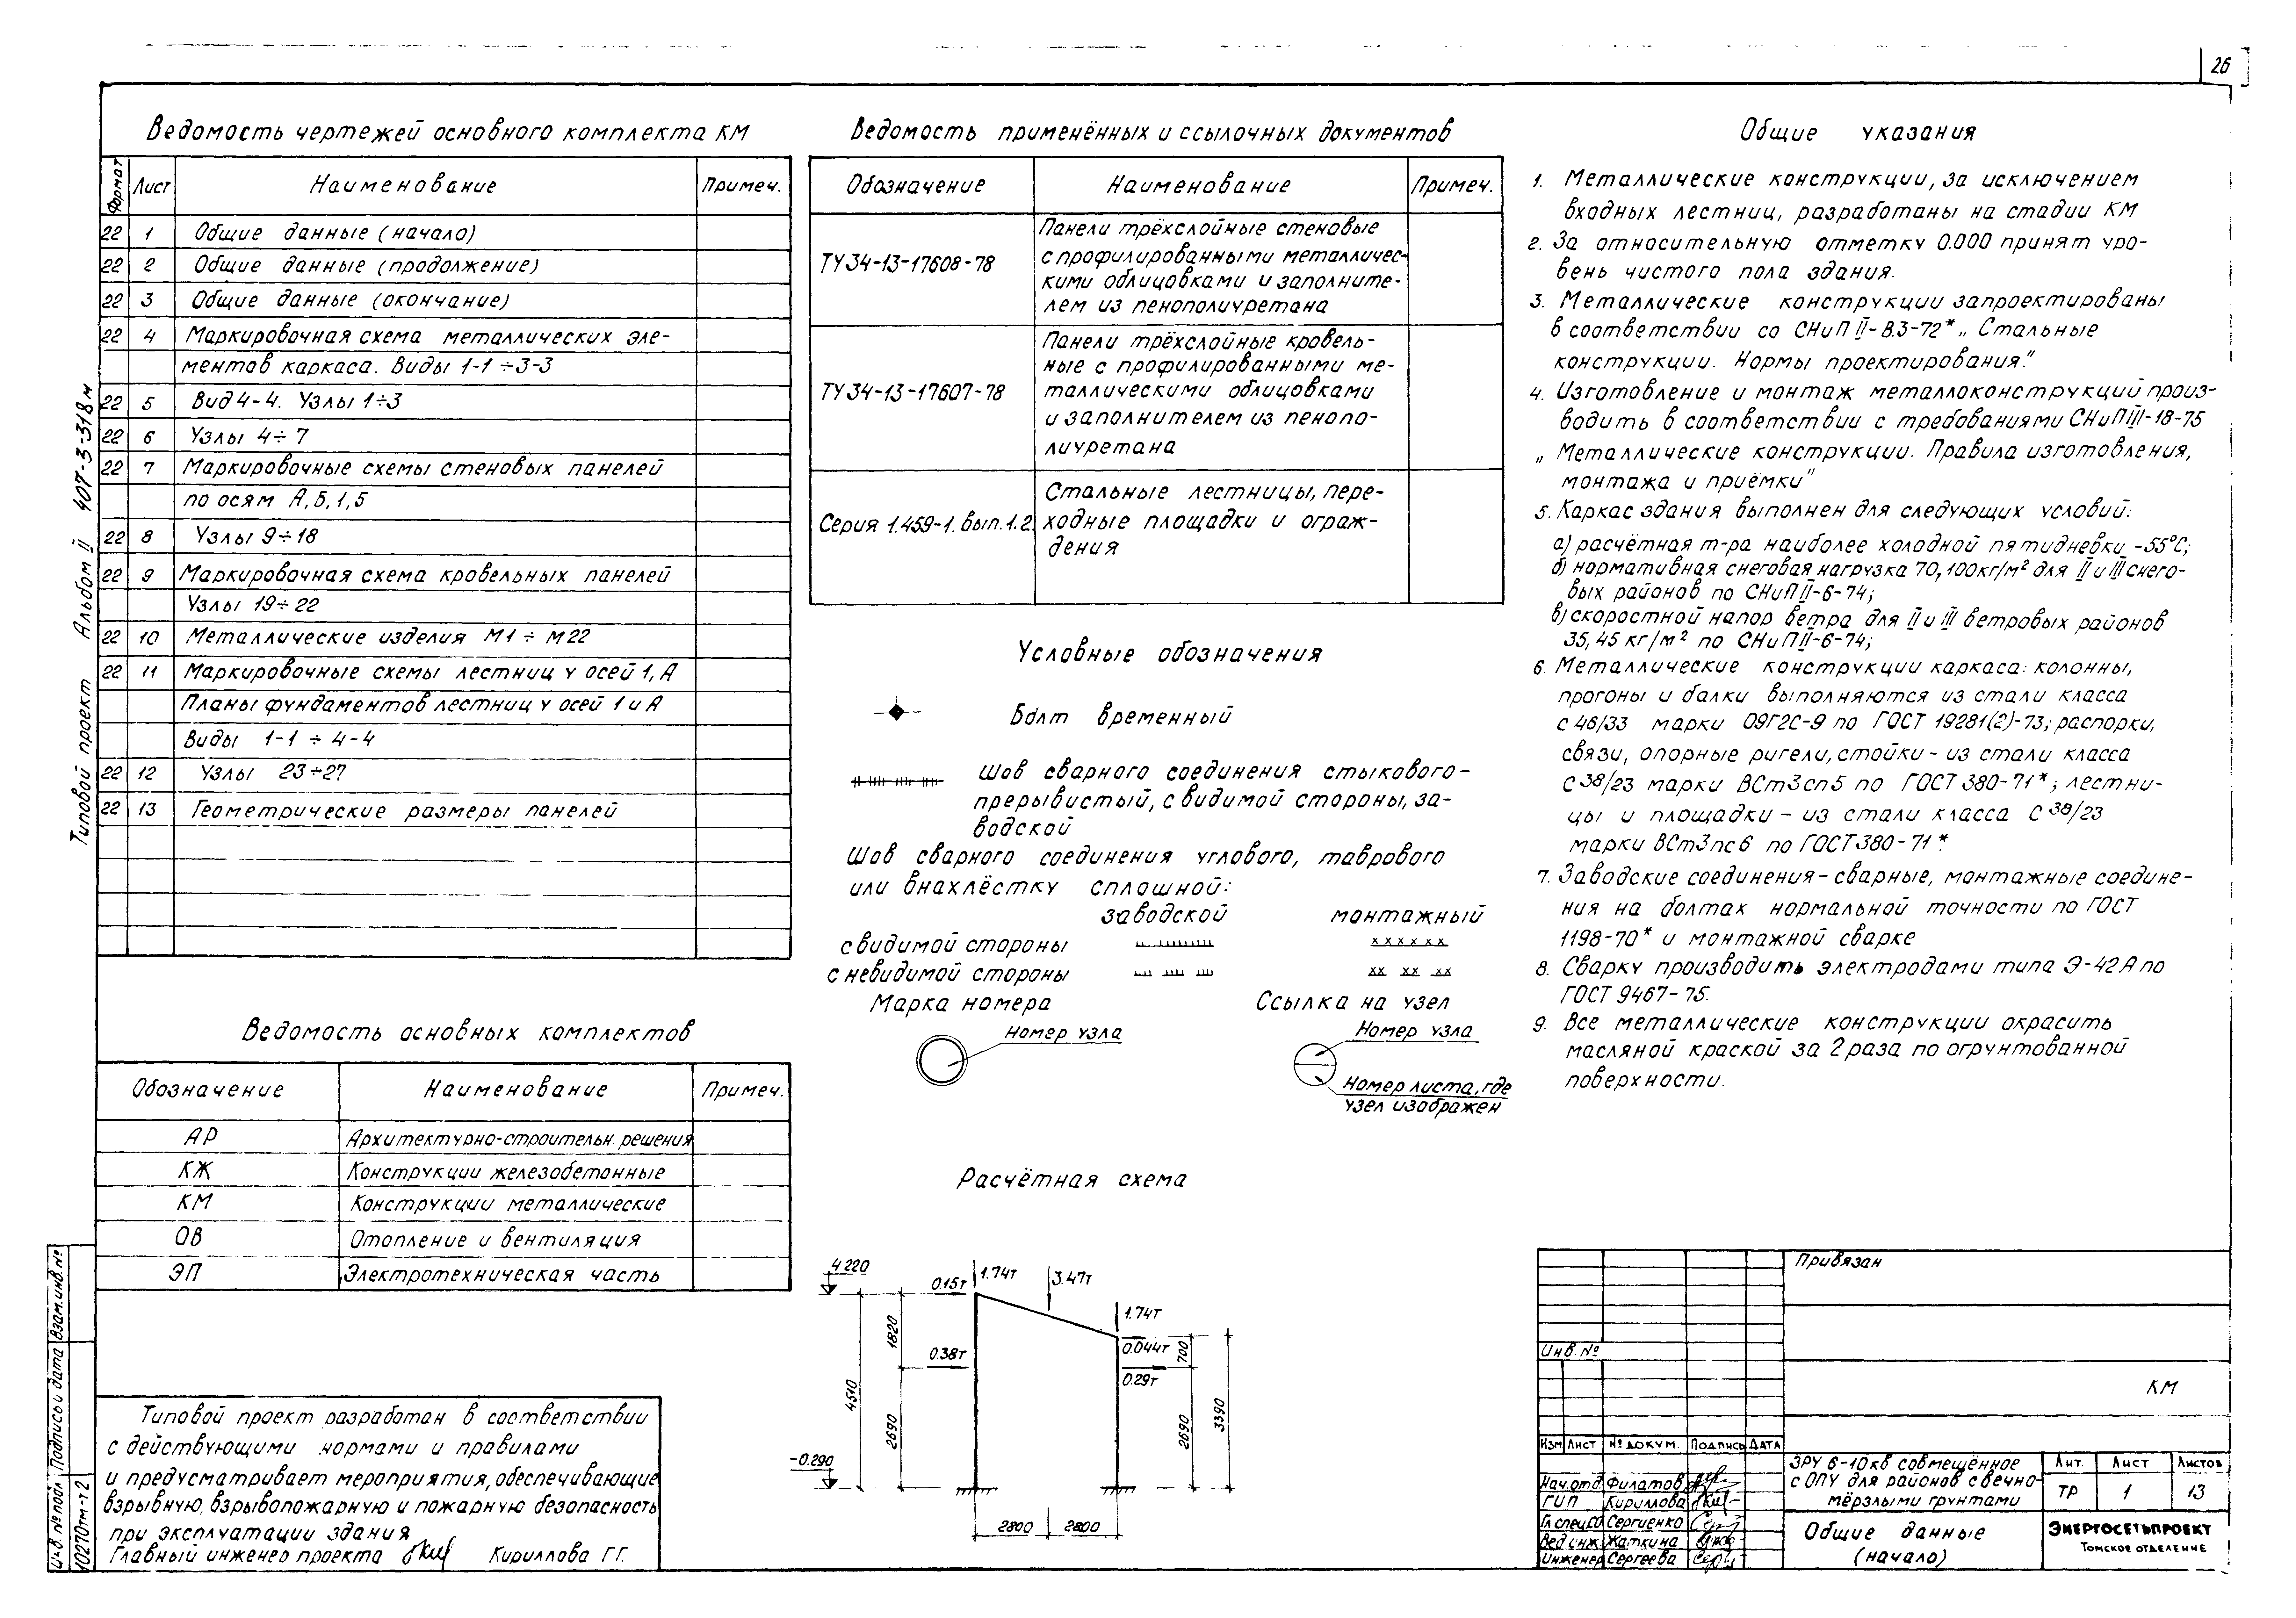 26
Ведомость чертежей основного комплекта КМ
Формат Лист Наименование Примеч.
22 1 Общие данные (начало)
22 2 Общие данные (продолжение)
22 3 Общие данные (окончание)
22 4 Маркировочная схема металлических эле-
ментов каркаса. Виды 1-1 ÷ 3-3
22 5 Вид 4-4. Узлы 1÷3
22 6 Узлы 4÷7
22 7 Маркировочные схемы стеновых панелей
по осям А, Б, 1, 5
22 8 Узлы 9÷18
22 9 Маркировочная схема кровельных панелей
Узлы 19÷22
22 10 Металлические изделия М1 ÷ М22
22 11 Маркировочные схемы лестниц у осей 1, А
Планы фундаментов лестниц у осей 1 и А
Виды 1-1 ÷ 4-4
22 12 Узлы 23÷27
22 13 Геометрические размеры панелей
Ведомость основных комплектов
Обозначение Наименование Примеч.
АР Архитектурно-строительн. решения
КЖ Конструкции железобетонные
КМ Конструкции металлические
ОВ Отопление и вентиляция
ЭП Электротехническая часть
Типовой проект разработан в соответствии
с действующими нормами и правилами
и предусматривает мероприятия, обеспечивающие
взрывную, взрывопожарную и пожарную безопасность
при эксплуатации здания
Главный инженер проекта Кириллова Г.Г.
Типовой проект Альбом II 407-3-318м
Инв. № подл. Подпись и дата Взам. инв. №
10270тм-т2
Ведомость применённых и ссылочных документов
Обозначение Наименование Примеч.
ТУ 34-13-17608-78
Панели трёхслойные стеновые
с профилированными металличес-
кими облицовками и заполните-
лем из пенополиуретана
ТУ 34-13-17607-78
Панели трёхслойные кровель-
ные с профилированными ме-
таллическими облицовками
и заполнителем из пенопо-
лиуретана
Серия 1.459-1. вып. 1.2.
Стальные лестницы, пере-
ходные площадки и ограж-
дения
Условные обозначения
Болт временный
Шов сварного соединения стыкового-
прерывистый, с видимой стороны, за-
водской
Шов сварного соединения углового, таврового
или внахлёстку сплошной:
заводской монтажный
с видимой стороны
с невидимой стороны
Марка номера Ссылка на узел
Номер узла Номер узла
Номер листа, где
узел изображен
Расчётная схема
4 220
0.15т 1.74т 3.47т
1.74т
0.38т 0.044т
0.29т
1820 4510 2690 700 2690 3390
-0.290
2800 2800
Общие указания
1. Металлические конструкции, за исключением
входных лестниц, разработаны на стадии КМ
2. За относительную отметку 0.000 принят уро-
вень чистого пола здания.
3. Металлические конструкции запроектированы
в соответствии со СНиП II-В.3-72* „Стальные
конструкции. Нормы проектирования."
4. Изготовление и монтаж металлоконструкций произ-
водить в соответствии с требованиями СНиП III-18-75
„Металлические конструкции. Правила изготовления,
монтажа и приёмки"
5. Каркас здания выполнен для следующих условий:
а) расчётная т-ра наиболее холодной пятидневки -55°С;
б) нормативная снеговая нагрузка 70, 100 кг/м² для II и III снего-
вых районов по СНиП II-6-74;
в) скоростной напор ветра для II и III ветровых районов
35, 45 кг/м² по СНиП II-6-74;
6. Металлические конструкции каркаса: колонны,
прогоны и балки выполняются из стали класса
С 46/33 марки 09Г2С-9 по ГОСТ 19281(2)-73; распорки,
связи, опорные ригели, стойки - из стали класса
С 38/23 марки ВСт3сп5 по ГОСТ 380-71*; лестни-
цы и площадки - из стали класса С 38/23
марки ВСт3пс6 по ГОСТ 380-71*.
7. Заводские соединения - сварные, монтажные соедине-
ния на болтах нормальной точности по ГОСТ
1198-70* и монтажной сварке
8. Сварку производить электродами типа Э-42А по
ГОСТ 9467-75.
9. Все металлические конструкции окрасить
масляной краской за 2 раза по огрунтованной
поверхности.
Привязан
Инв. №
КМ
Изм Лист № докум. Подпись Дата
Нач. отд. Филатов
ГИП Кириллова
Гл спец СО Сергиенко
Вед инж. Жаткина
Инженер Сергеева
ЗРУ 6-10кв совмещённое
с ОПУ для районов с вечно-
мёрзлыми грунтами
Лит. Лист Листов
ТР 1 13
Общие данные
(начало)
ЭНЕРГОСЕТЬПРОЕКТ
Томское отделение